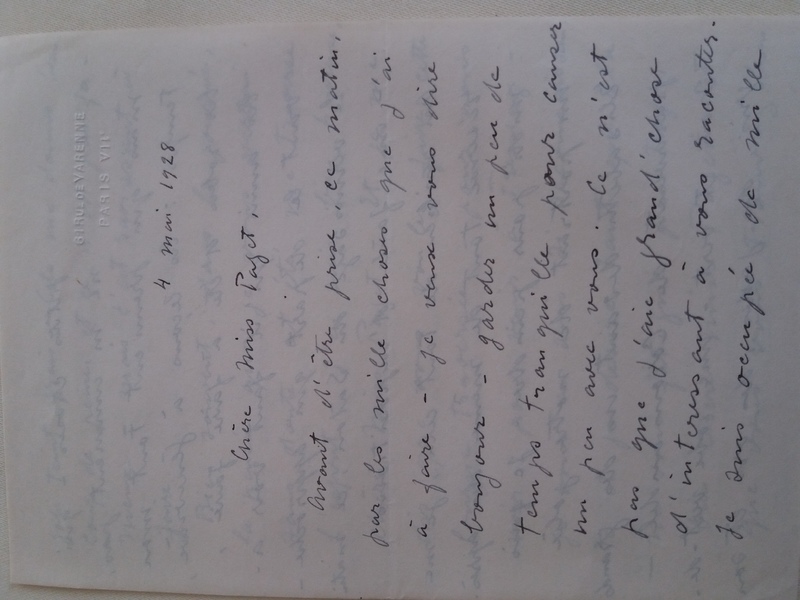 61 RUE DE VARENNE
PARIS VIIᵉ
4 mai 1928
Chère Miss Paget,
Avant d'être prise, ce matin,
par les mille choses que j'ai
à faire - je veux vous dire
bonjour - garder un peu de
temps tranquille pour causer
un peu avec vous. Ce n'est
pas que j'aie grand'chose
d'interessant à vous raconter.
Je suis occupée de mille